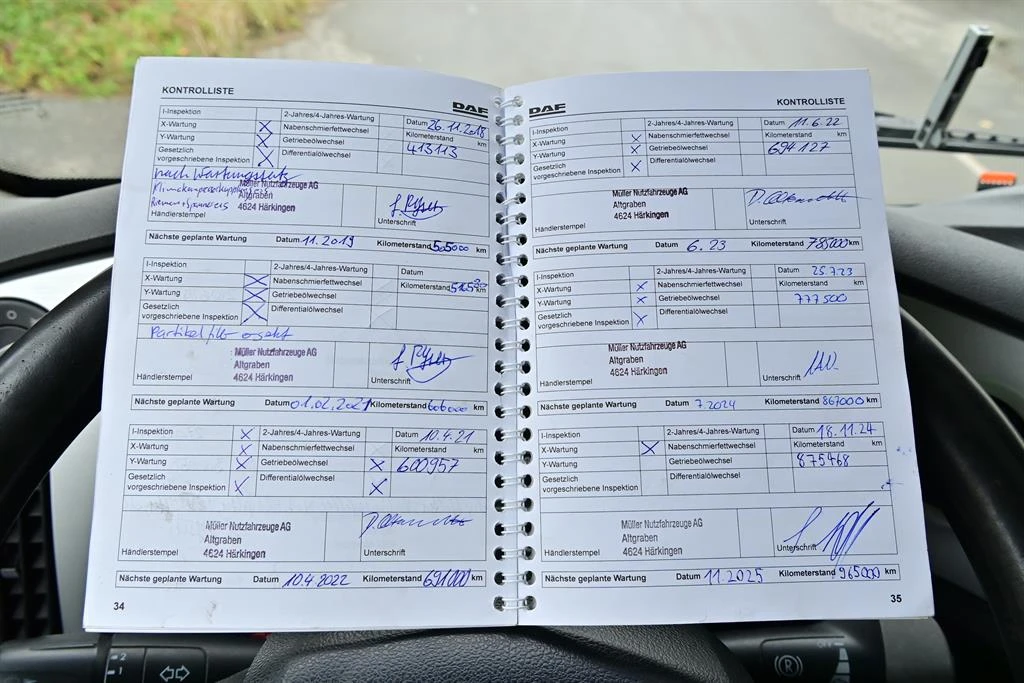 KONTROLLISTE
DAF
I-Inspektion 2-Jahres/4-Jahres-Wartung Datum 26.11.2018
X-Wartung X Nabenschmierfettwechsel Kilometerstand km
Y-Wartung X Getriebeölwechsel 413113
Gesetzlich vorgeschriebene Inspektion X Differentialölwechsel
nach Wartungssatz
Müller Nutzfahrzeuge AG
Altgraben
4624 Härkingen
Händlerstempel Unterschrift
Nächste geplante Wartung Datum 11.2019 Kilometerstand 505000 km
I-Inspektion 2-Jahres/4-Jahres-Wartung Datum
X-Wartung X Nabenschmierfettwechsel Kilometerstand km
Y-Wartung X Getriebeölwechsel
Gesetzlich vorgeschriebene Inspektion X Differentialölwechsel
Partikelfilter ersetzt
Müller Nutzfahrzeuge AG
Altgraben
4624 Härkingen
Händlerstempel Unterschrift
Nächste geplante Wartung Datum 01.02.2021 Kilometerstand 606000 km
I-Inspektion X 2-Jahres/4-Jahres-Wartung Datum 10.4.21
X-Wartung X Nabenschmierfettwechsel Kilometerstand km
Y-Wartung X Getriebeölwechsel X 600957
Gesetzlich vorgeschriebene Inspektion X Differentialölwechsel X
Müller Nutzfahrzeuge AG
Altgraben
4624 Härkingen
Händlerstempel Unterschrift
Nächste geplante Wartung Datum 10.4.2022 Kilometerstand 691000 km
34
DAF
KONTROLLISTE
I-Inspektion 2-Jahres/4-Jahres-Wartung Datum 11.6.22
X-Wartung X Nabenschmierfettwechsel Kilometerstand km
Y-Wartung X Getriebeölwechsel 694127
Gesetzlich vorgeschriebene Inspektion X Differentialölwechsel
Müller Nutzfahrzeuge AG
Altgraben
4624 Härkingen
Händlerstempel Unterschrift
Nächste geplante Wartung Datum 6.23 Kilometerstand 785000 km
I-Inspektion 2-Jahres/4-Jahres-Wartung Datum 25.7.23
X-Wartung X Nabenschmierfettwechsel Kilometerstand km
Y-Wartung X Getriebeölwechsel 777500
Gesetzlich vorgeschriebene Inspektion X Differentialölwechsel
Müller Nutzfahrzeuge AG
Altgraben
4624 Härkingen
Händlerstempel Unterschrift
Nächste geplante Wartung Datum 7.2024 Kilometerstand 867000 km
I-Inspektion 2-Jahres/4-Jahres-Wartung Datum 18.11.24
X-Wartung X Nabenschmierfettwechsel Kilometerstand km
Y-Wartung Getriebeölwechsel 875468
Gesetzlich vorgeschriebene Inspektion Differentialölwechsel
Müller Nutzfahrzeuge AG
Altgraben
4624 Härkingen
Händlerstempel Unterschrift
Nächste geplante Wartung Datum 11.2025 Kilometerstand 965000 km
35
2
1
OFF